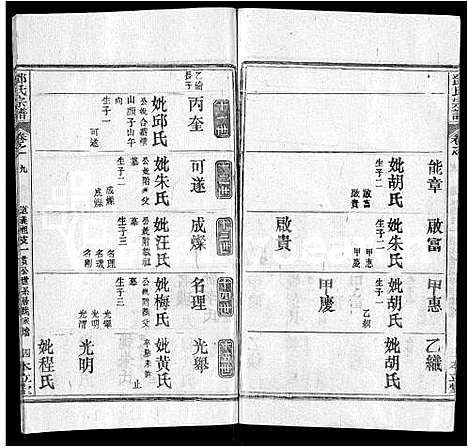 鄧氏宗譜
卷之
能章
妣胡氏
生子二
啟富
啟貴
啟富
妣朱氏
生子二
甲惠
甲慶
啟貴
甲惠
妣胡氏
生子一
乙織
甲慶
乙織
妣胡氏
十一世
丙奎
妣邱氏
公妣合葬
山頭子山午
向
生子一
可遂
十二世
可遂
妣朱氏
公妣附葬父
墓
生子一
成燦
十三世
成燦
妣汪氏
公妣附葬祖
墓
生子三
名理
名達
名剛
十四世
名理
妣梅氏
公妣附葬父
墓
生子三
光舉
光明
光清
十五世
光舉
妣黃氏
止
光明
妣程氏
鄧氏宗譜
卷之
九
四
本立堂